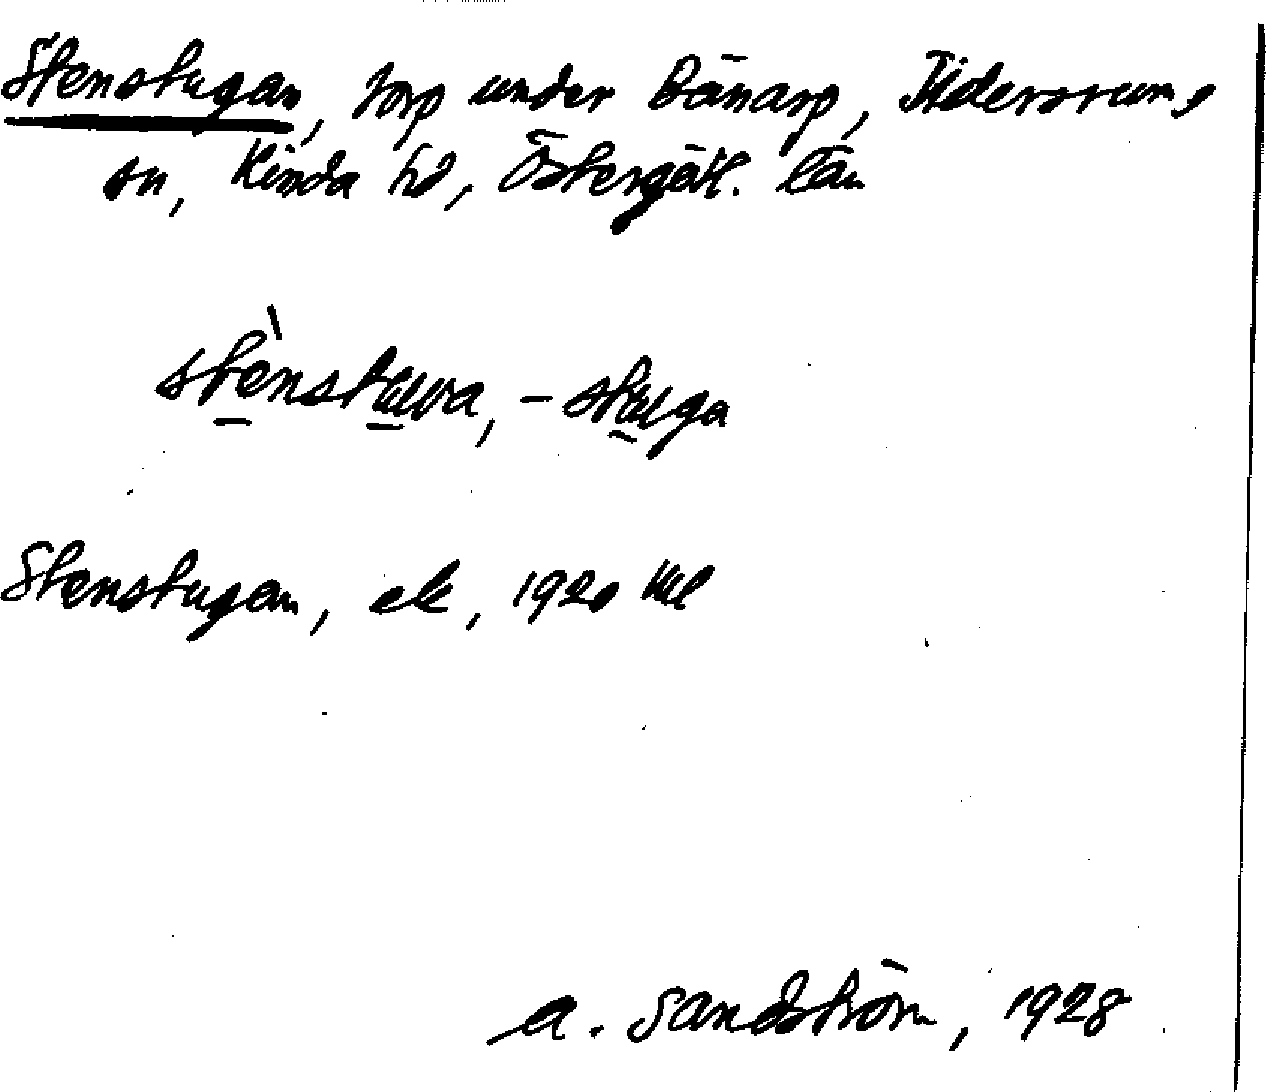 Stenstugan, torp under Bänarp, Tidersrums
sn, Kinda hd, Östergötl. län
stènstuwa, -stuga
Stenstugan, ek, 1920 Ml
A. Sandström, 1928